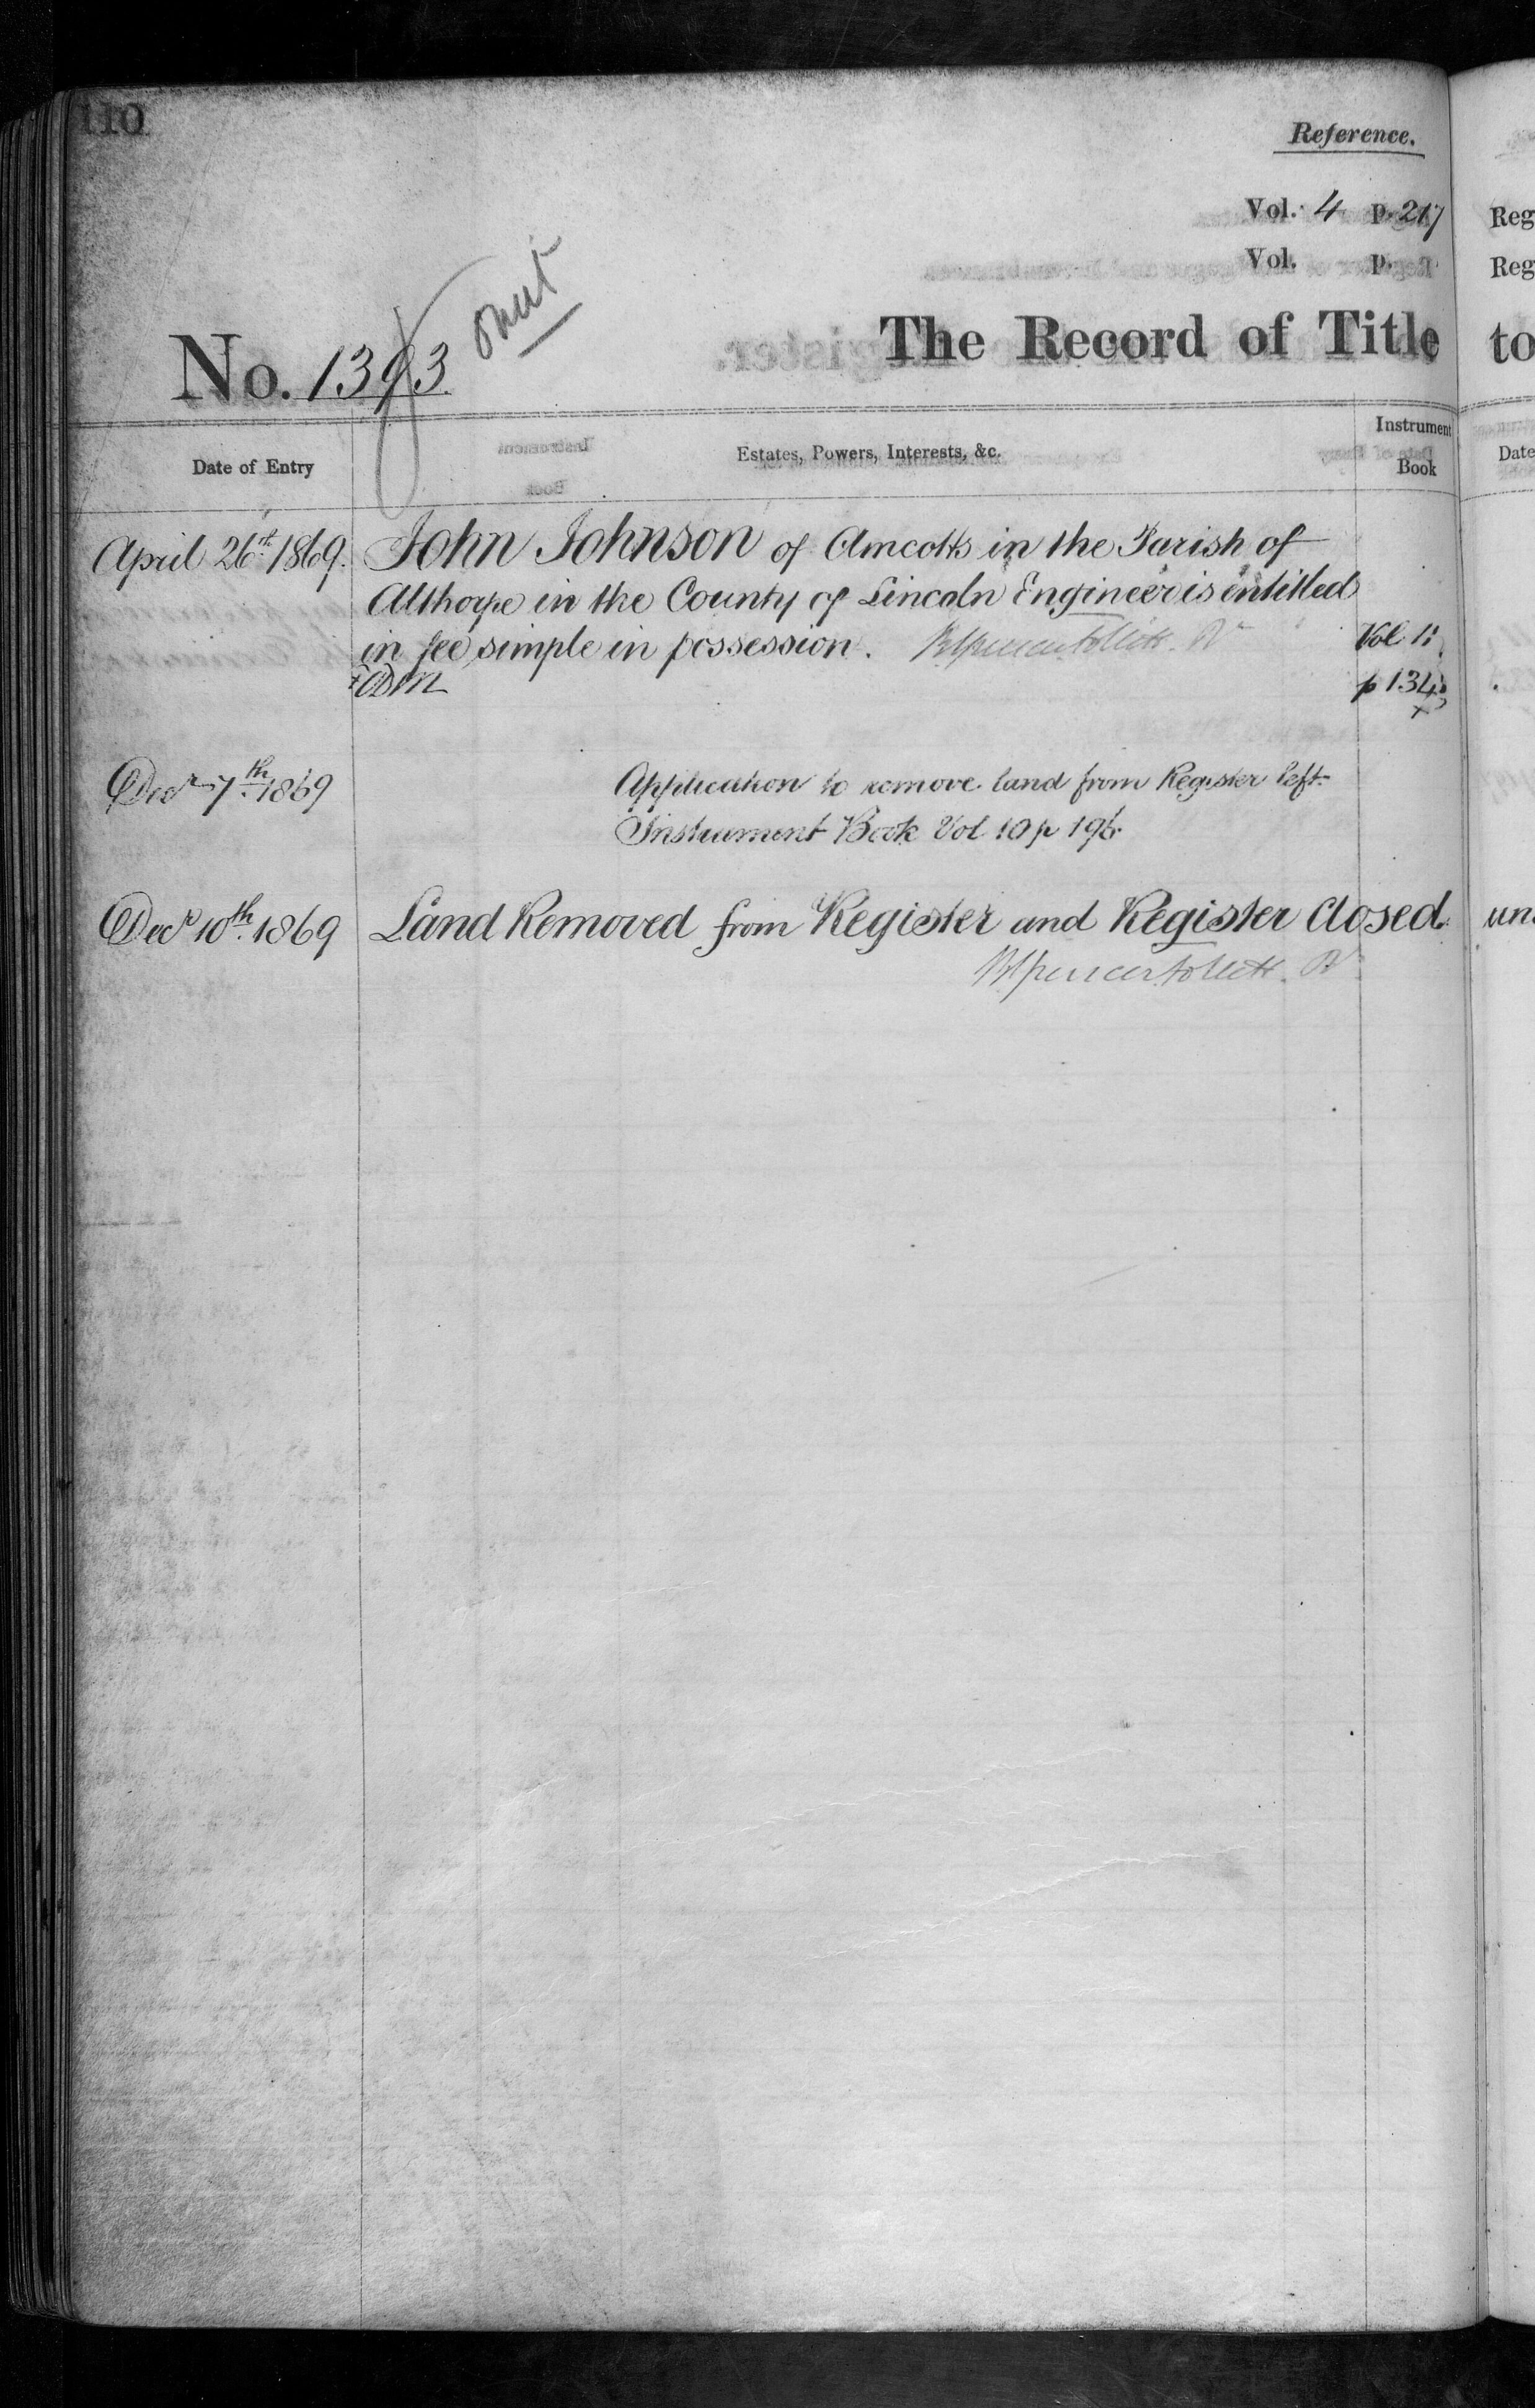 110
Reference.
Vol. 4 p. 217
Vol. p.
omit
No. 1393
The Record of Title
Date of Entry
Estates, Powers, Interests, &c.
Instrument
Book
April 26th 1869. John Johnson of Amcotts in the Parish of
Althorpe in the County of Lincoln Engineer is entitled
in fee simple in possession.
Vol 11
p 134
Decr 7th 1869
Application to remove land from Register left
Instrument Book Vol 10 p 196
Decr 10th 1869 Land Removed from Register and Register Closed.
Reg
Reg
to
Date